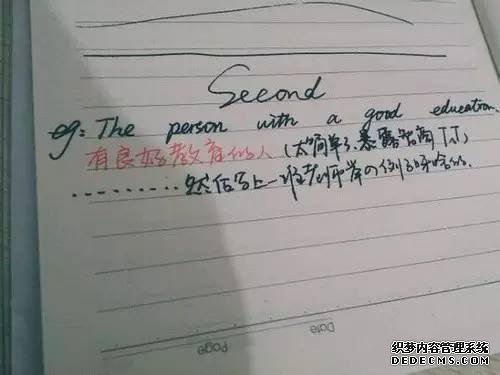 Second
eg: The person with a good education.
有良好教育的人 (太简单了.暴露智商TJ)
然后写上一班老师举の例子
Date
Page
织梦内容管理系统
DEDECMS.COM